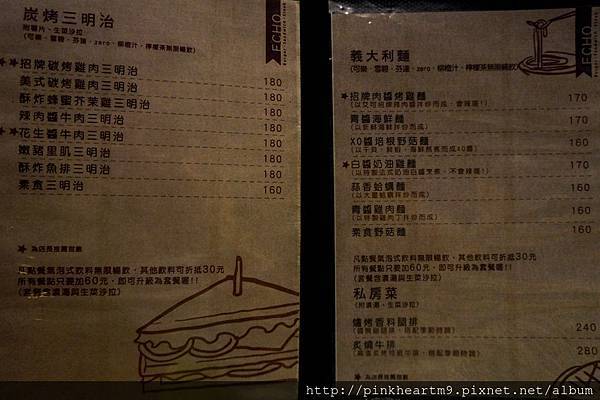 炭烤三明治
附薯片、生菜沙拉
(可樂、雪碧、芬達、zero、柳橙汁、檸檬茶無限暢飲)
ECHO
★招牌碳烤雞肉三明治 180
美式碳烤雞肉三明治 180
酥炸蜂蜜芥茉雞三明治 180
辣肉醬牛肉三明治 180
★花生醬牛肉三明治 180
嫩豬里肌三明治 180
酥炸魚排三明治 160
素食三明治 160
★ 為店長推薦餐點
凡點餐氣泡式飲料無限暢飲，其他飲料可折抵30元
所有餐點只要加60元，即可升級為套餐喔!!
(套餐含濃湯與生菜沙拉)
義大利麵
(可樂、雪碧、芬達、zero、柳橙汁、檸檬茶無限暢飲)
ECHO
★招牌肉醬烤雞麵 170
青醬海鮮麵 170
XO醬培根野菇麵 160
★白醬奶油雞麵 170
蒜香蛤蠣麵 160
青醬雞肉麵 160
素食野菇麵 160
凡點餐氣泡式飲料無限暢飲，其他飲料可折抵30元
所有餐點只要加60元，即可升級為套餐喔!!
(套餐含濃湯與生菜沙拉)
私房菜
(附濃湯、生菜沙拉)
爐烤香料腿排 240
炙燒牛排 280
★ 為店長推薦餐點
http://pinkheartm9.pixnet.net/album